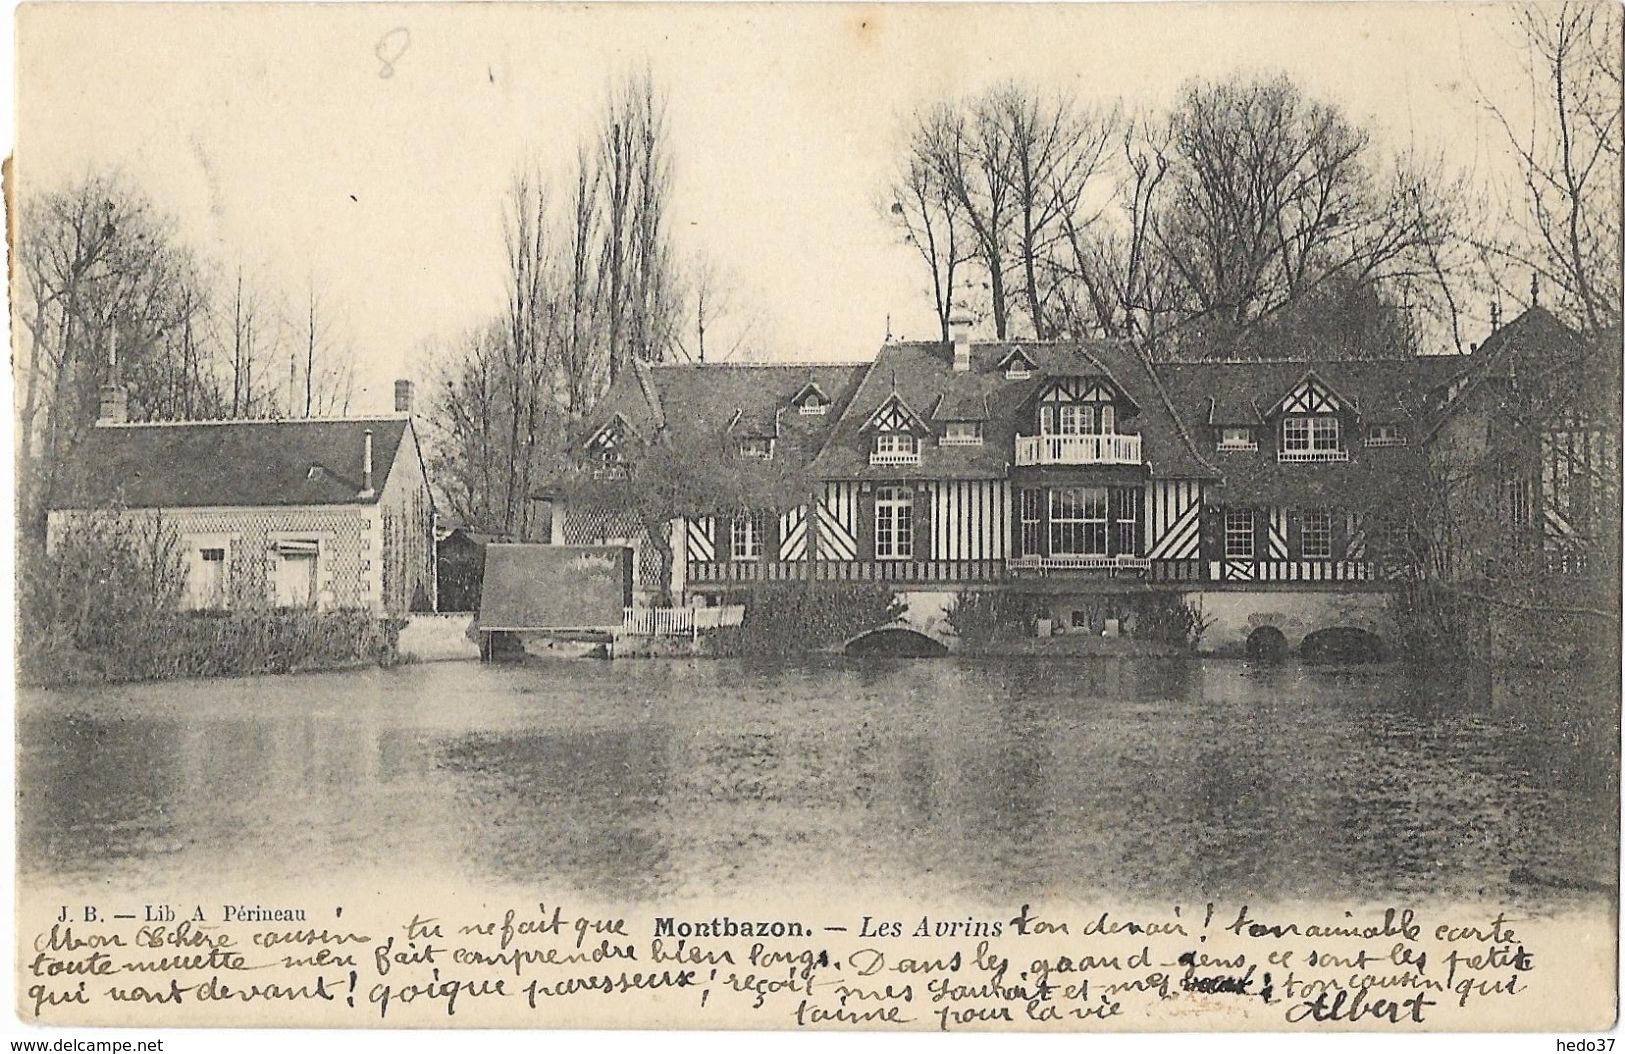 8
J. B. — Lib A Périneau
Montbazon. — Les Avrins
Mon Chère cousin, tu ne fait que ton devoir! ton aimable carte
toute muette m'en fait comprendre bien longs. Dans les grand gens ce sont les petit
qui vont devant! qoique paresseux, reçoit mes souhait et mes ton cousin qui
t'aime pour la vie Albert
delcampe.net
hedo37